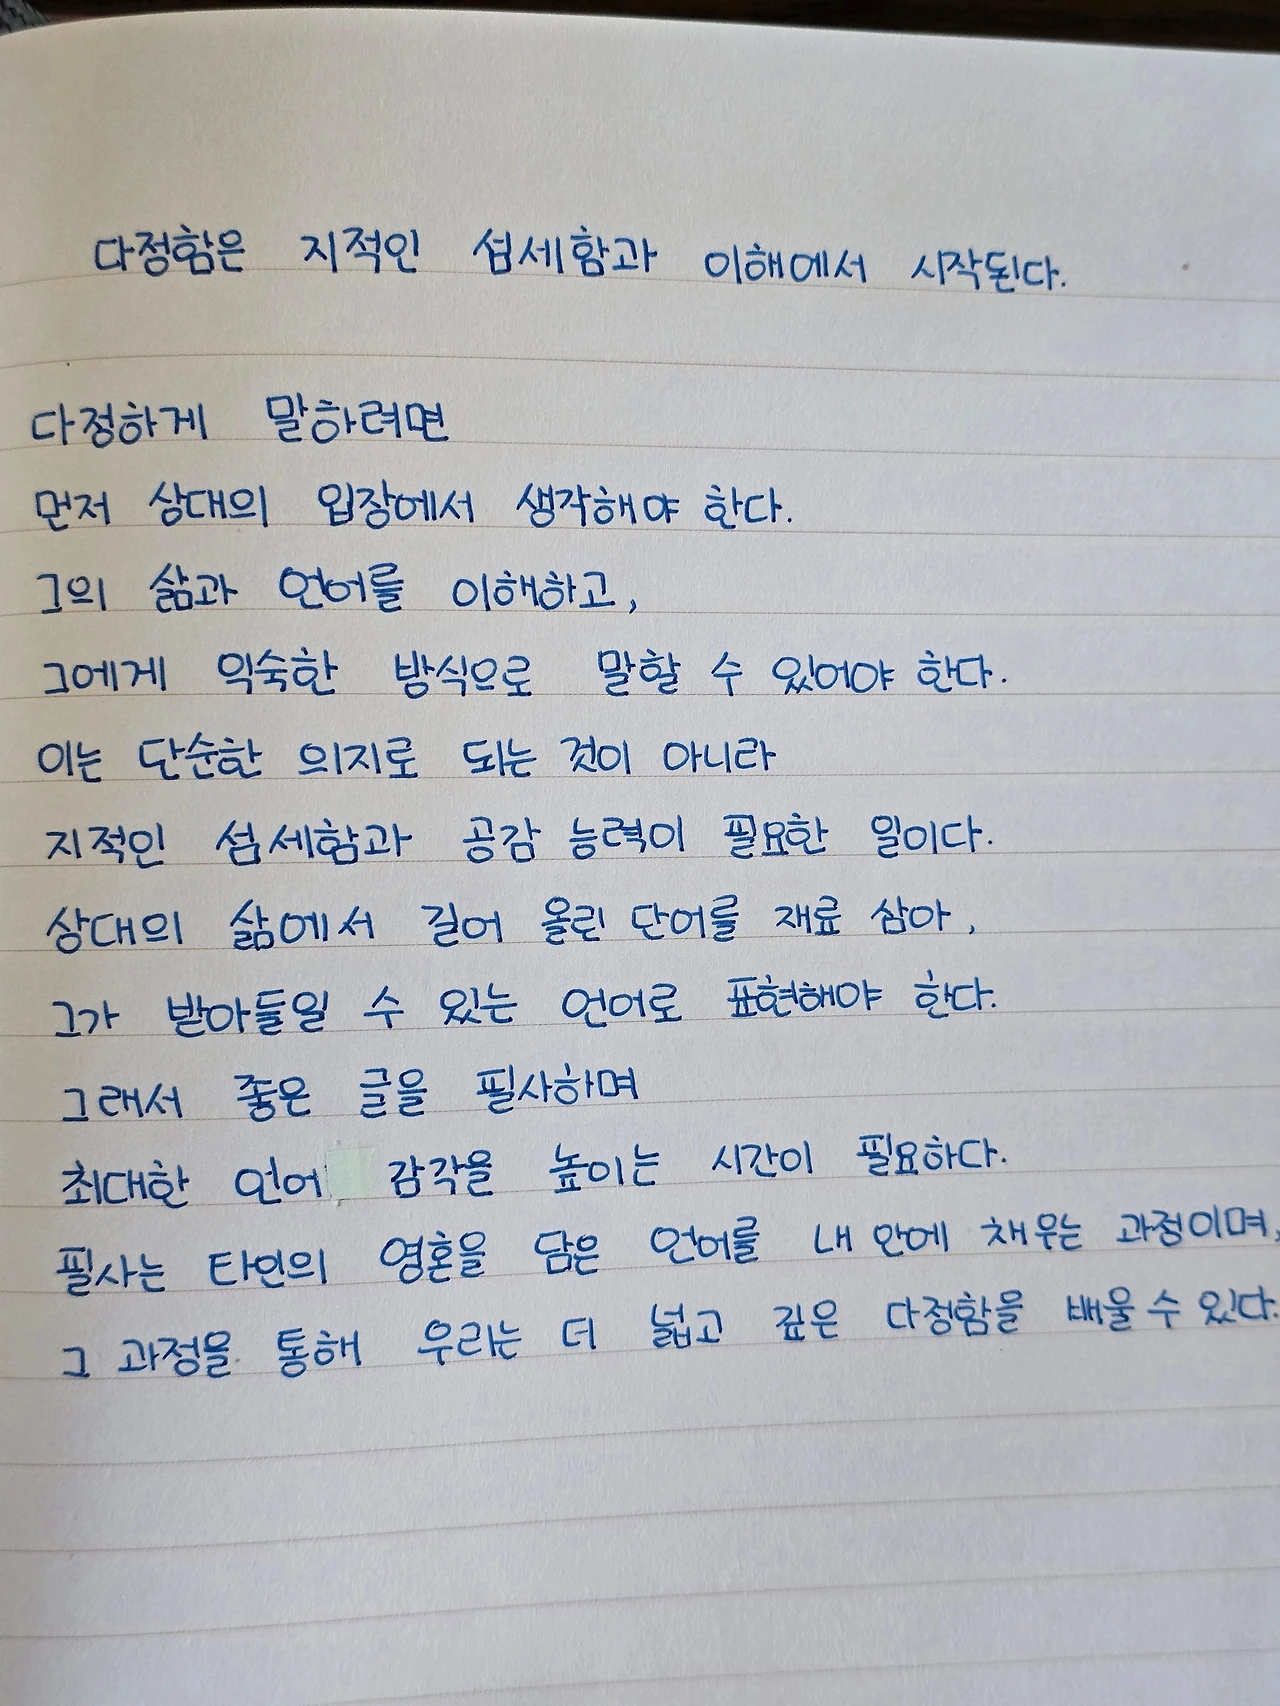 다정함은 지적인 섬세함과 이해에서 시작된다.
다정하게 말하려면
먼저 상대의 입장에서 생각해야 한다.
그의 삶과 언어를 이해하고,
그에게 익숙한 방식으로 말할 수 있어야 한다.
이는 단순한 의지로 되는 것이 아니라
지적인 섬세함과 공감 능력이 필요한 일이다.
상대의 삶에서 길어 올린 단어를 재료 삼아,
그가 받아들일 수 있는 언어로 표현해야 한다.
그래서 좋은 글을 필사하며
최대한 언어 감각을 높이는 시간이 필요하다.
필사는 타인의 영혼을 담은 언어를 내 안에 채우는 과정이며,
그 과정을 통해 우리는 더 넓고 깊은 다정함을 배울 수 있다.